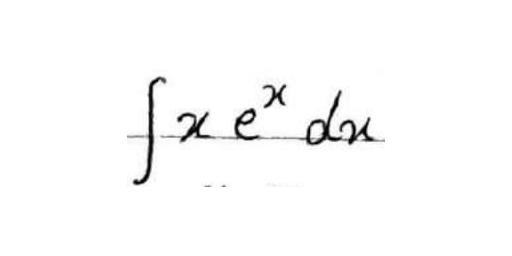 ∫ x eˣ dx